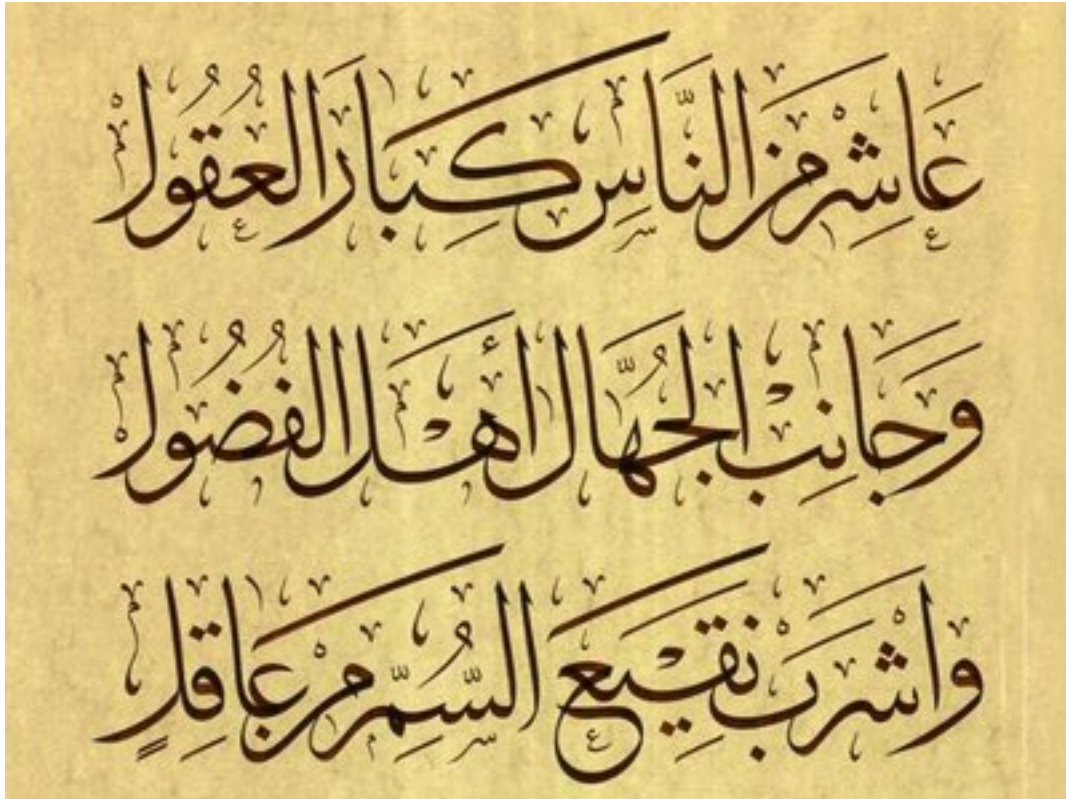 عَاشِرْ مِنَ النَّاسِ كِبَارَ العُقُولْ
وَجَانِبِ الجُهَّالَ أَهْلَ الفُضُولْ
وَاشْرَبْ نَقِيعَ السُّمِّ مِنْ عَاقِلٍ